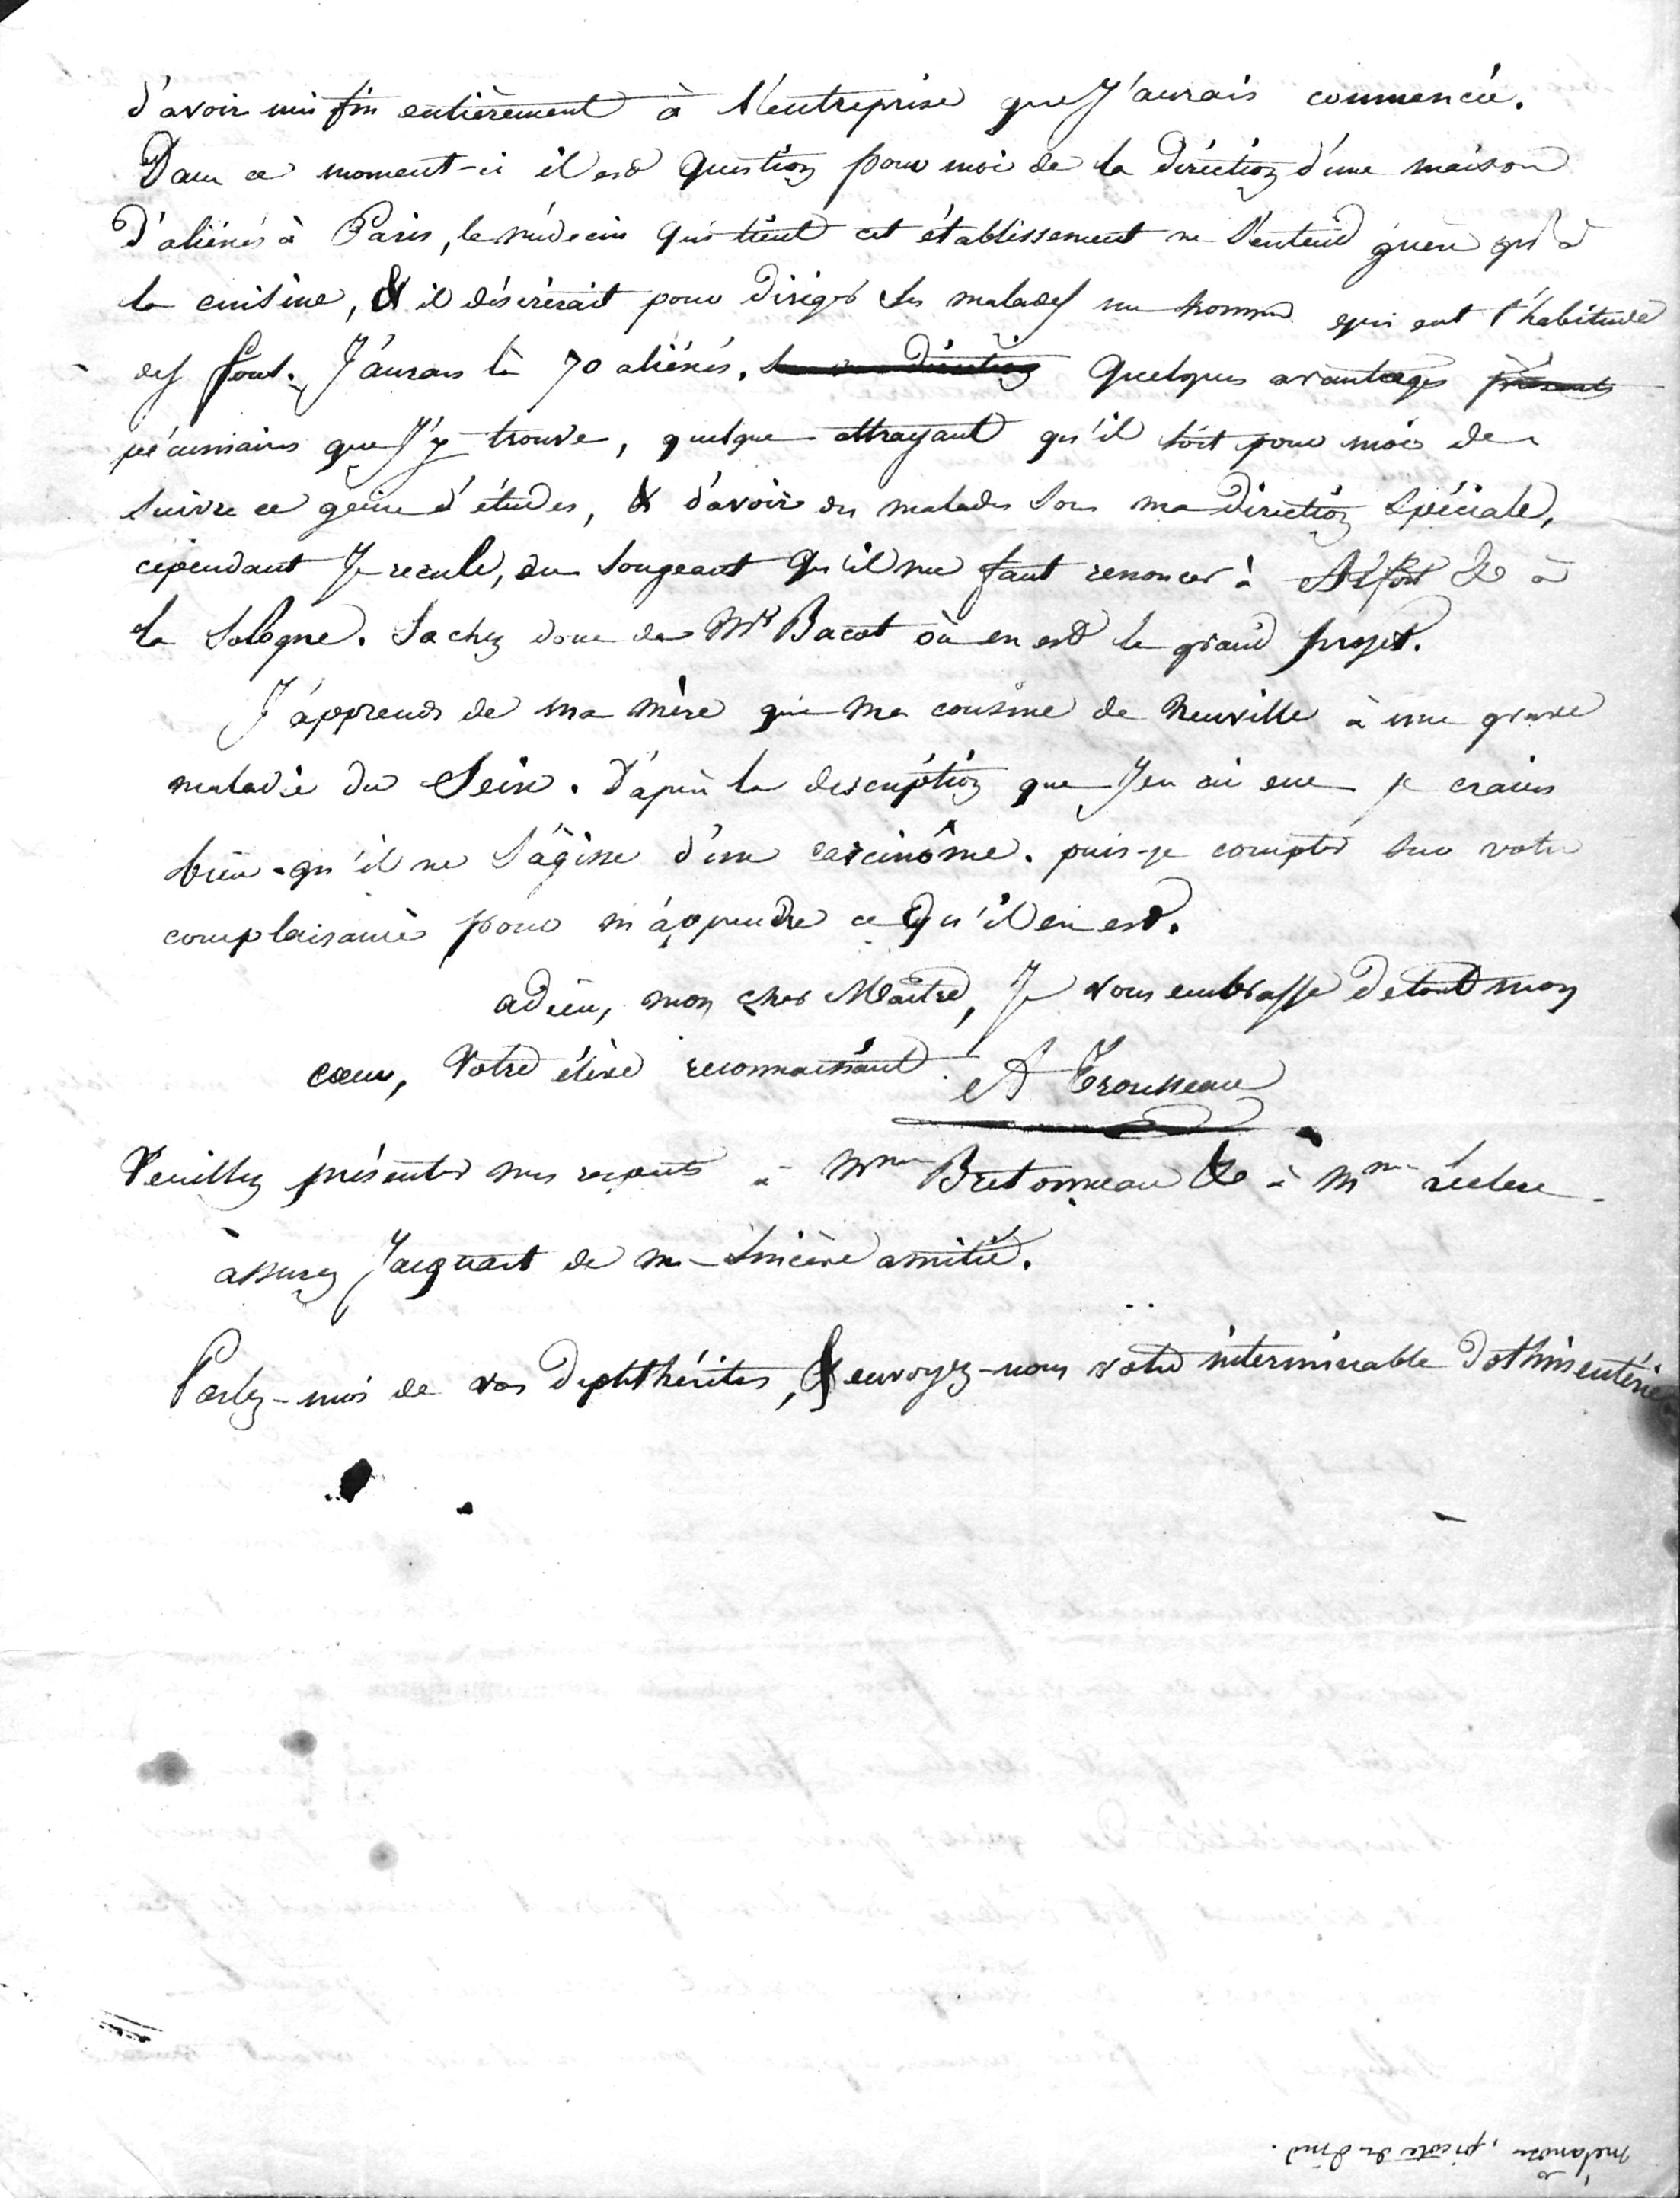 d'avoir mis fin entièrement à l'entreprise que J'aurais commencée.
Dans ce moment-ci il est question pour moi de la direction d'une maison
d'aliénés à Paris, le médecin qui tient cet établissement ne s'entend guère qu'à
la cuisine, & il désirerait pour diriger ses malades un homme qui eut l'habitude
des fous. J'aurais là 70 aliénés. direction Quelques avantages présents
pécuniaires que J'y trouve, quelque attrayant qu'il soit pour moi de
suivre ce genre d'études, & d'avoir des malades sous ma direction spéciale,
cependant Je recule, en songeant qu'il me faut renoncer à Alfort & à
la Sologne. Sachez donc de Mr Bacot où en est le grand projet.
J'apprends de ma mère que ma cousine de neuville à une grave
maladie du Sein. D'après la description que J'en ai eue je crains
bien qu'il ne s'agisse d'un carcinôme. puis-je compter sur votre
complaisance pour m'apprendre ce qu'il en est.
adieu, mon cher Maître, Je vous embrasse de tout mon
cœur, Votre élève reconnaissant. A Trousseau
Veuillez présenter mes respects à Mme Bretonneau & à Mme Leclerc
assurez Jacquart de ma sincère amitié.
Parlez-moi de vos diphthérites, & envoyez-nous votre interminable Dothinentérie